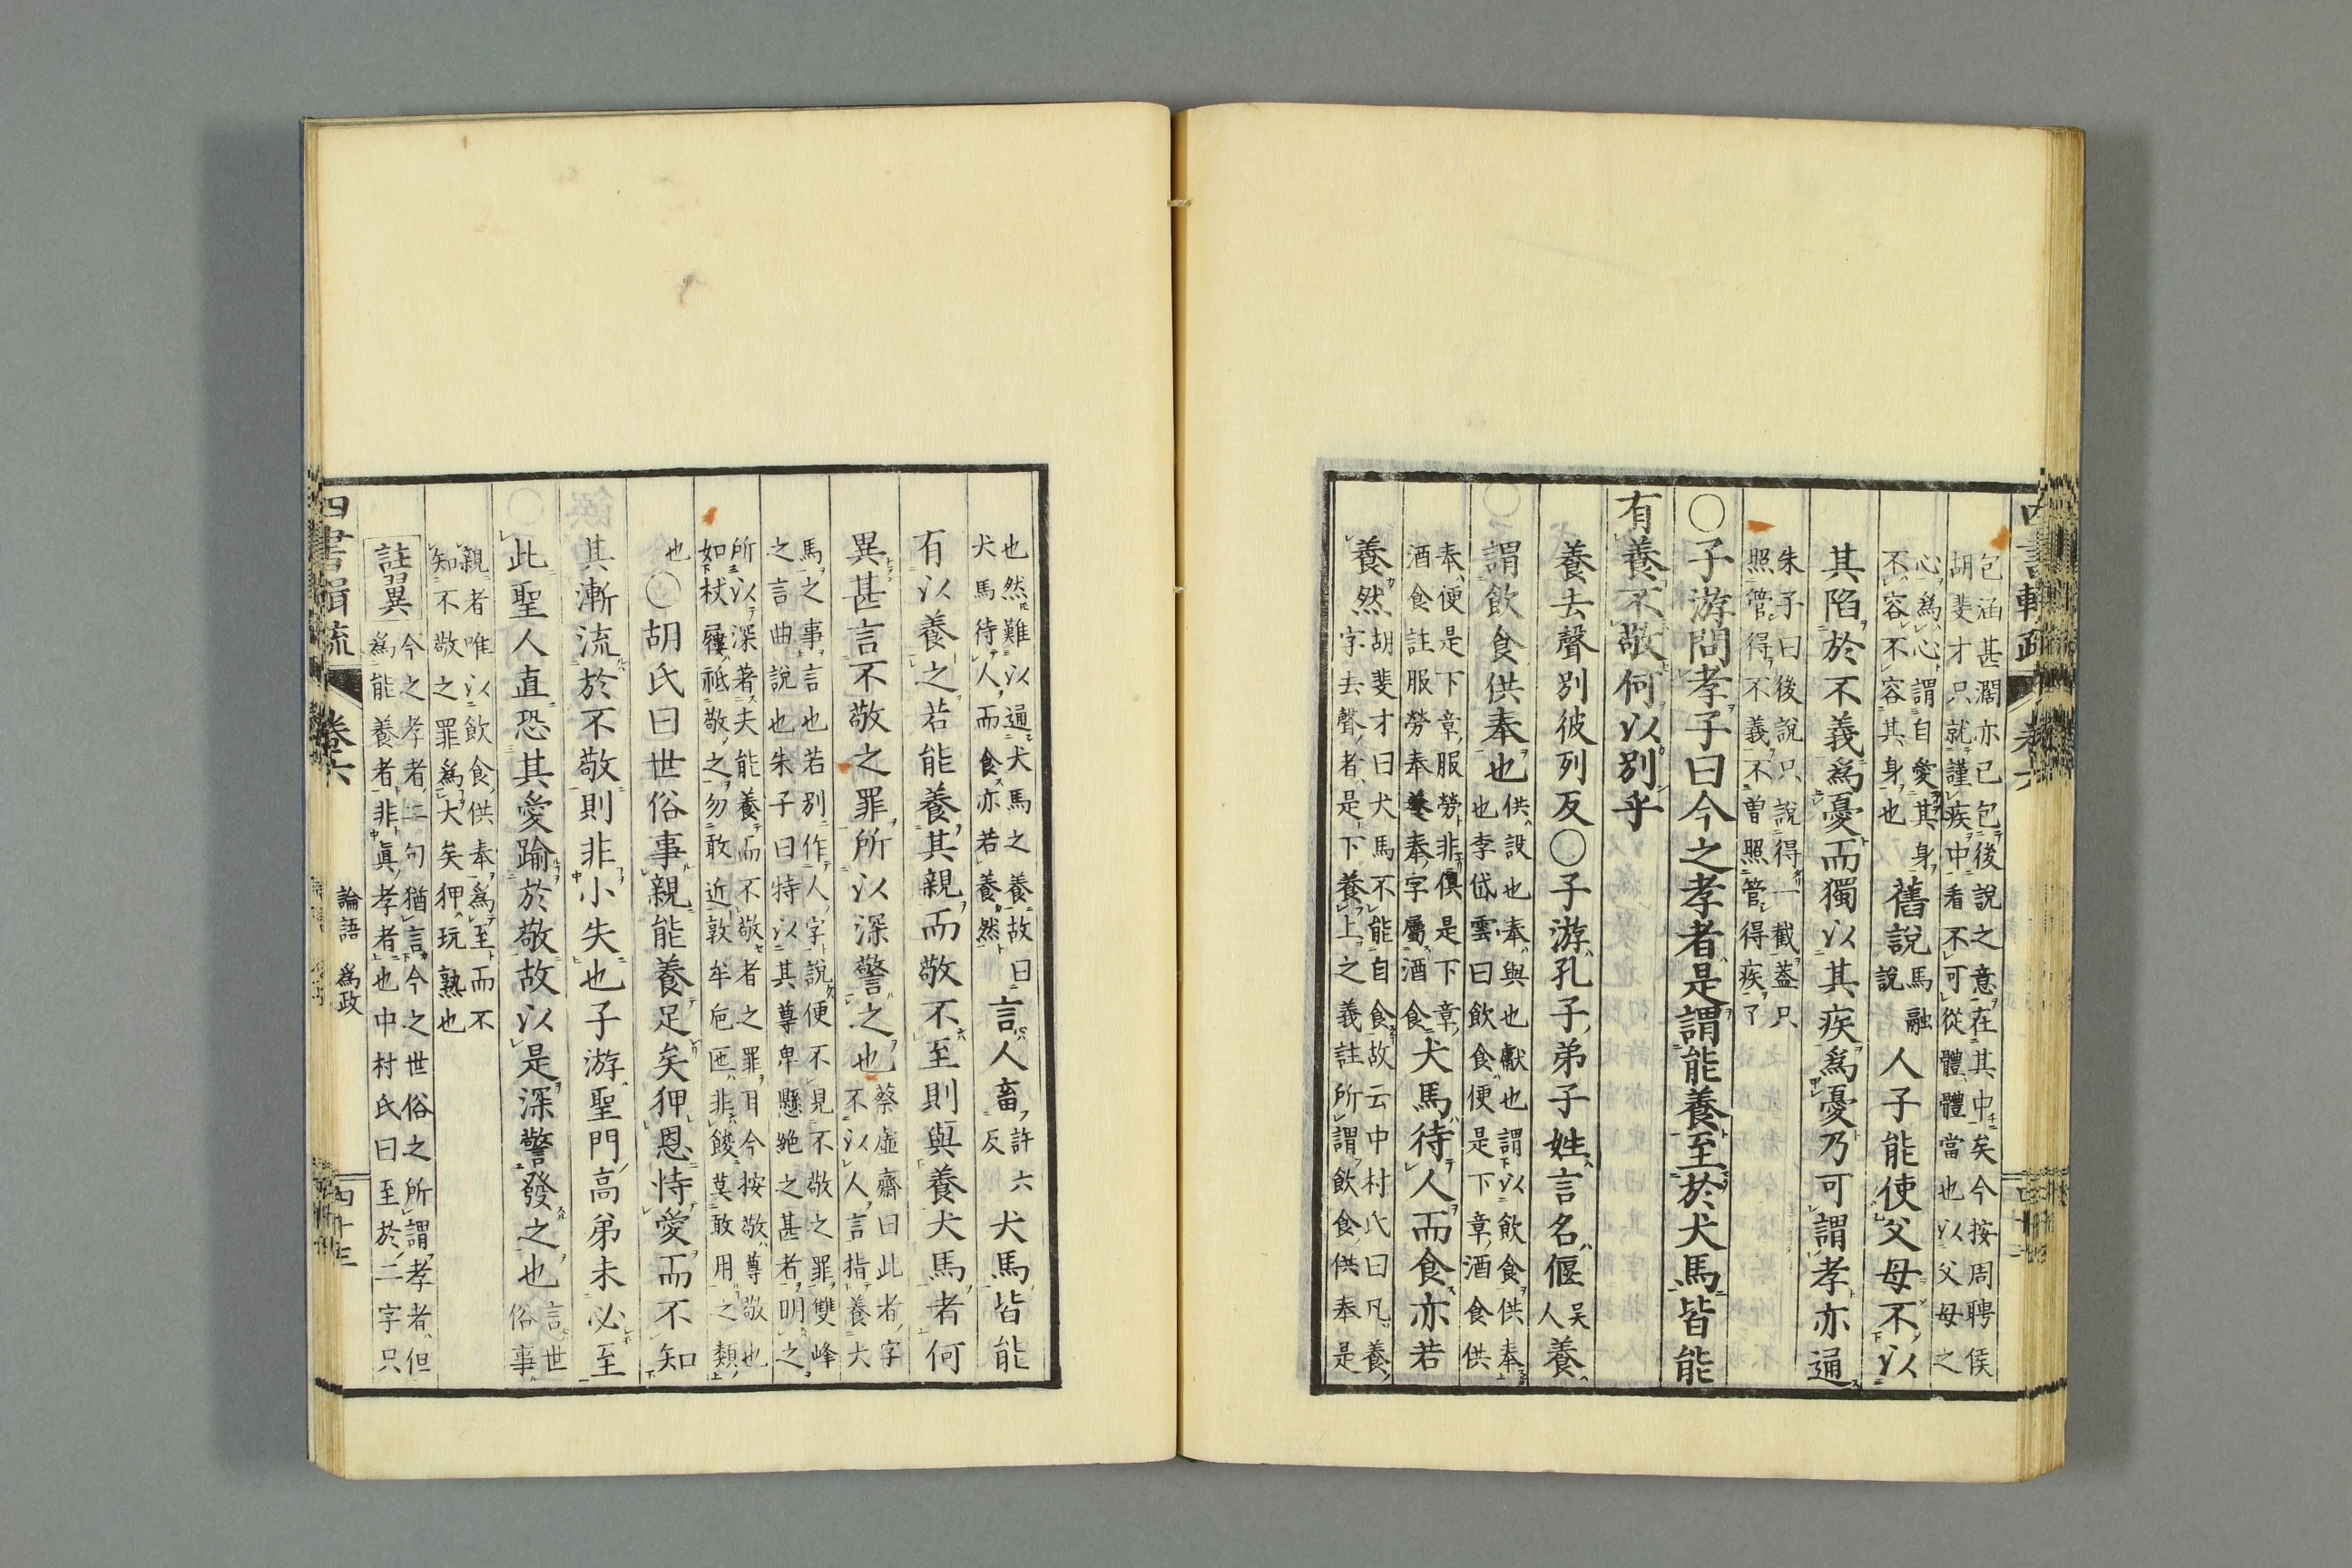 包涵甚濶亦已包後說之意在其中矣今按周聘侯
胡斐才只就謹疾中看不可從體體當也以父母之
心爲心謂自愛其身舊說馬融人子能使父母不以
不容不容其身也說
其陷於不義爲憂而獨以其疾爲憂乃可謂孝亦通
朱子曰後說只說得一截葢只
照管得不義不曽照管得疾了
○子游問孝子曰今之孝者是謂能養至於犬馬皆能
有養不敬何以別乎
養去聲別彼列反○子游孔子弟子姓言名偃吴人養
謂飲食供奉也供設也奉與也獻也謂以飲食供奉
也李岱雲曰飲食便是下章酒食供
奉便是下章服勞非俱是下章
酒食註服勞奉養奉字屬酒食犬馬待人而食亦若
養然胡斐才曰犬馬不能自食故云中村氏曰凡養
字去聲者是下養上之義註所謂飲食供奉是
也然難以通犬馬之養故曰言人畜許六反犬馬皆能
犬馬待人而食亦若養然
有以養之若能養其親而敬不至則與養犬馬者何
異甚言不敬之罪所以深警之也蔡虛齋曰此者字
不以人言指養犬
馬之事言也若別作人字說便不見不敬之罪雙峰
之言曲說也朱子曰特以其尊卑懸絶之甚者明之
所以深著夫能養而不敬者之罪耳今按敬尊敬也
如杖屨祗敬之勿敢近敦牟巵匜非餕莫敢用之類
也○胡氏曰世俗事親能養足矣狎恩恃愛而不知
其漸流於不敬則非小失也子游聖門高弟未必至
此聖人直恐其愛踰於敬故以是深警發之也言世
俗事
親者唯以飲食供奉爲至而不
知不敬之罪爲大矣狎玩熟也
註翼今之孝者二句猶言今之世俗之所謂孝者但
爲能養者非眞孝者也中村氏曰至於二字只
四書輯疏
卷六
論語
爲政
四十三